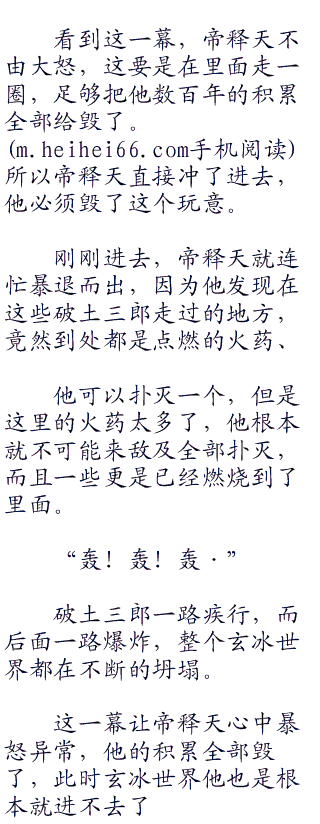 看到这一幕，帝释天不
由大怒，这要是在里面走一
圈，足够把他数百年的积累
全部给毁了。
(m.heihei66.com手机阅读)
所以帝释天直接冲了进去，
他必须毁了这个玩意。
刚刚进去，帝释天就连
忙暴退而出，因为他发现在
这些破土三郎走过的地方，
竟然到处都是点燃的火药、
他可以扑灭一个，但是
这里的火药太多了，他根本
就不可能来敌及全部扑灭，
而且一些更是已经燃烧到了
里面。
“轰！轰！轰·”
破土三郎一路疾行，而
后面一路爆炸，整个玄冰世
界都在不断的坍塌。
这一幕让帝释天心中暴
怒异常，他的积累全部毁
了，此时玄冰世界他也是根
本就进不去了